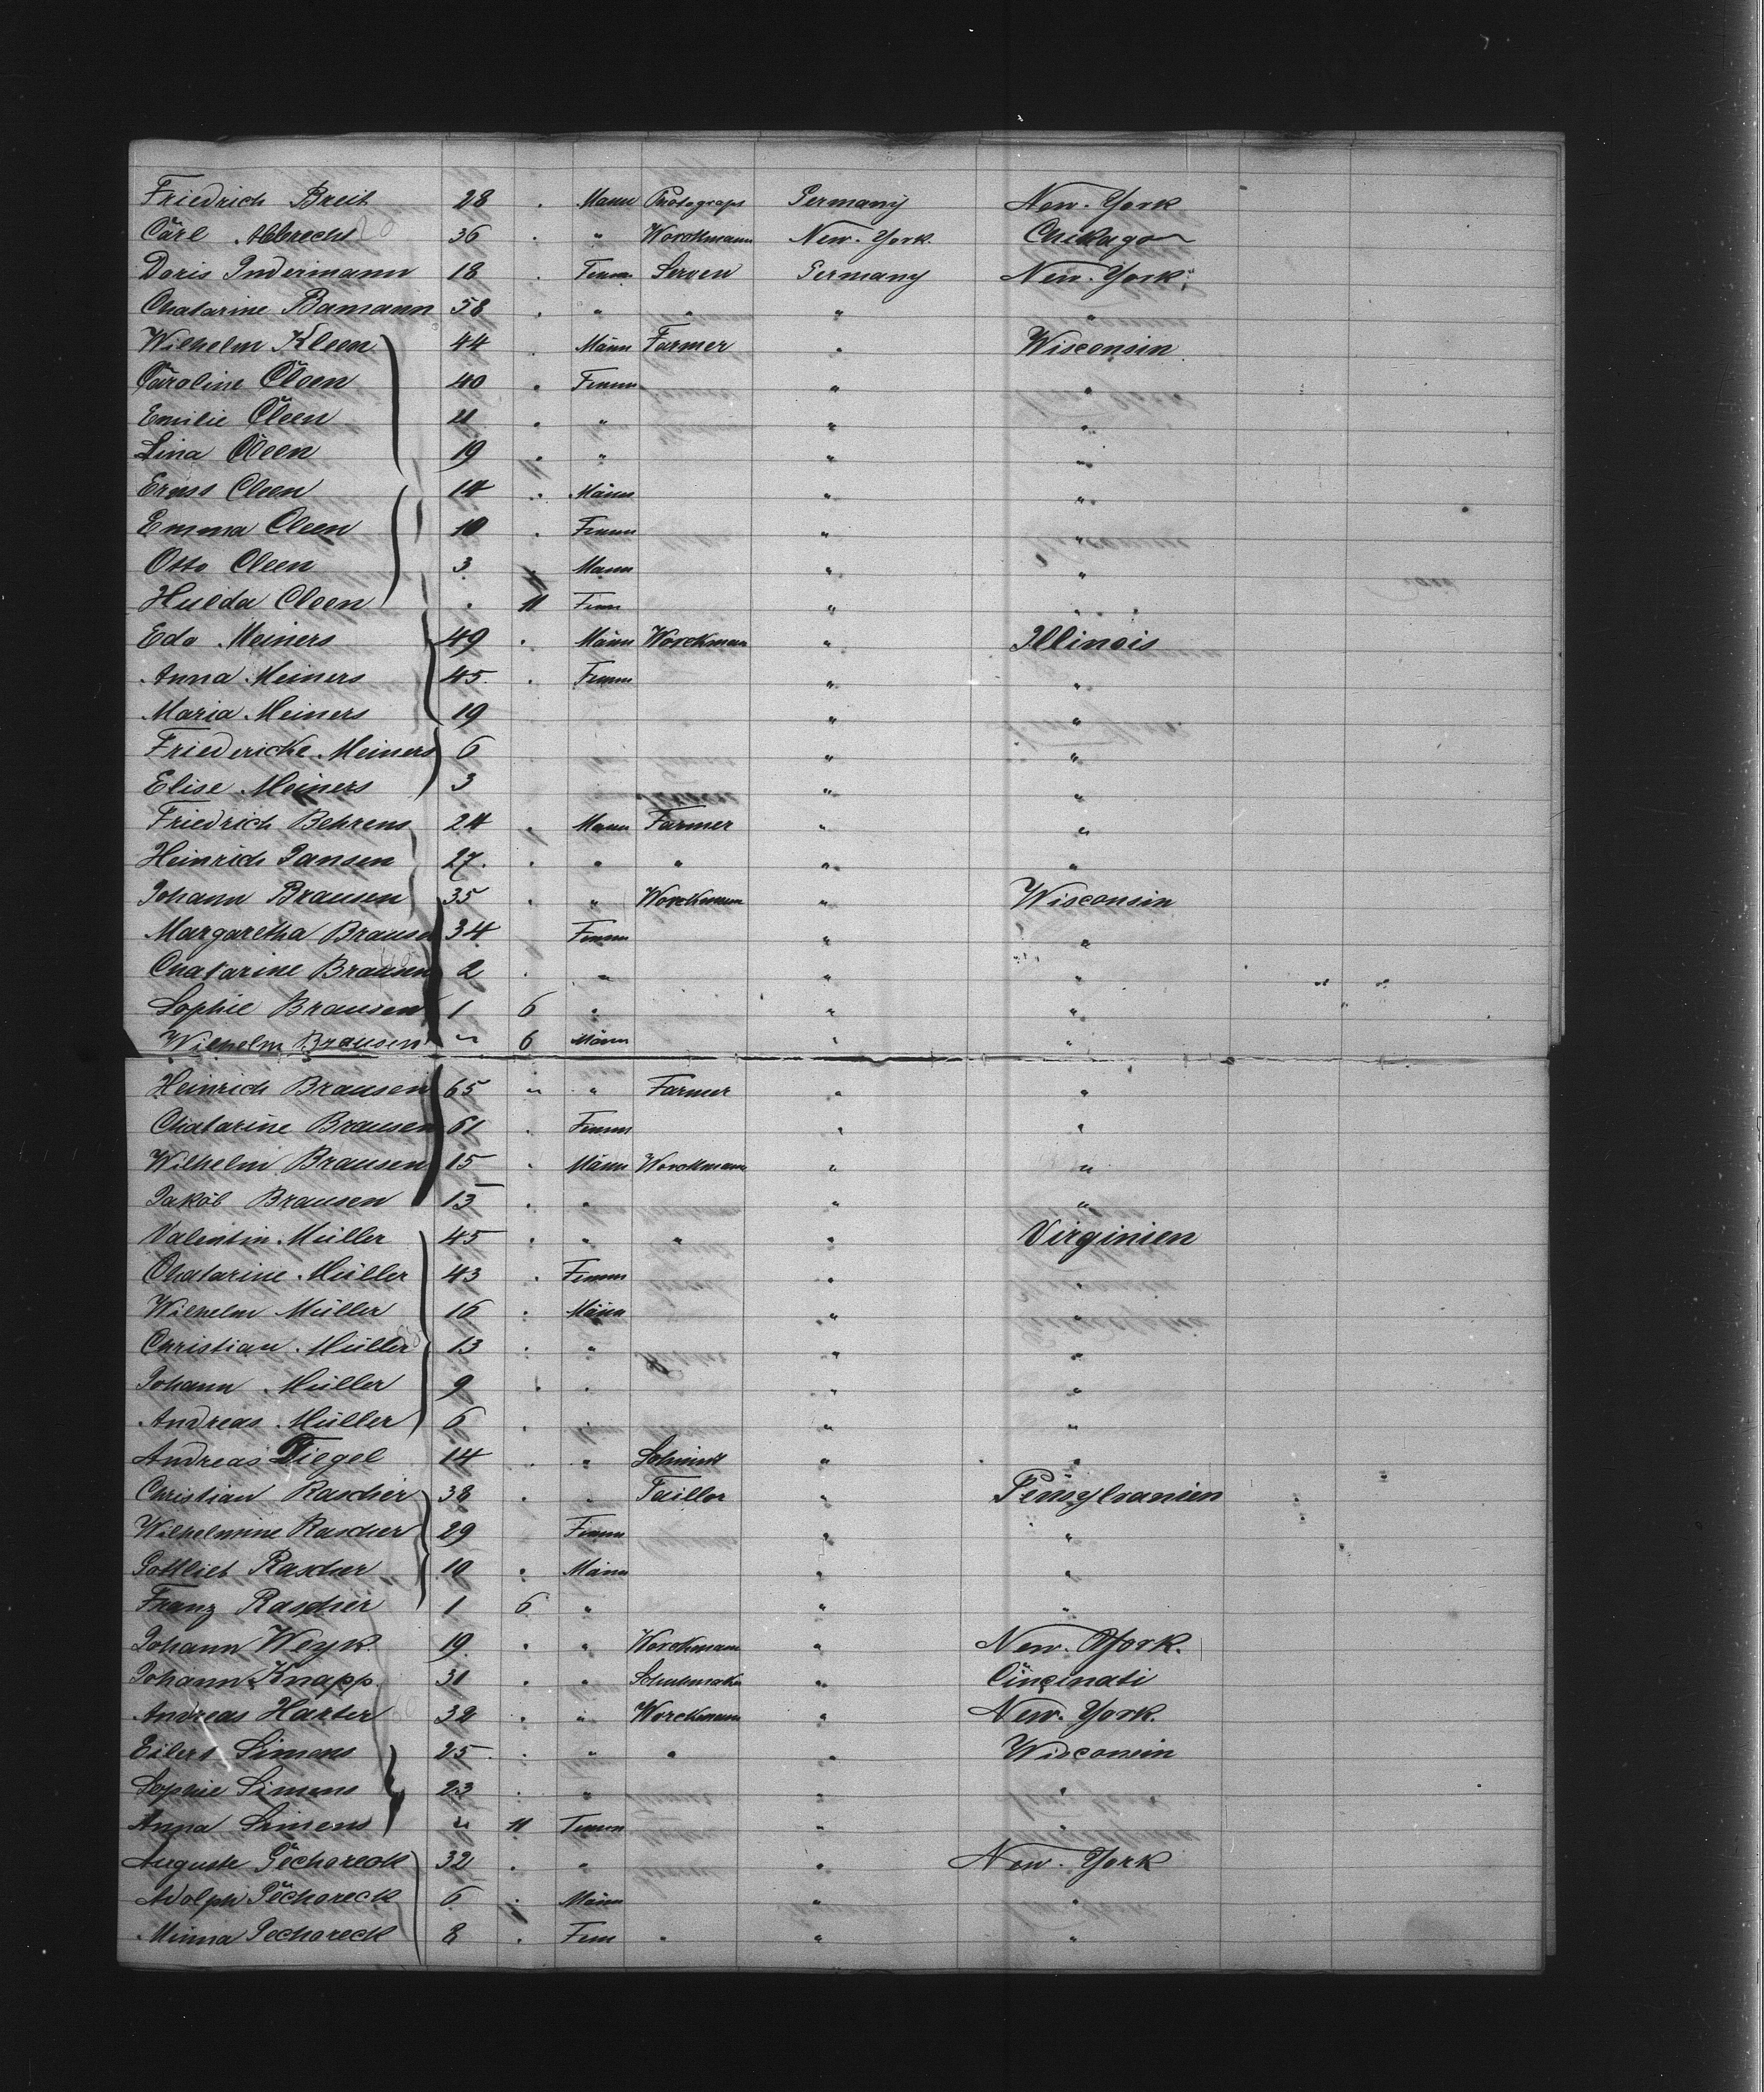 Friedrich Breit 28 . Mann Photograps Germany New-York
Carl Albrecht 36 . " Worckmann New-York Chikago
Doris Indermann 18 . Femm Serven Germany New-York
Chatarine Bamann 58 . " " " "
Wilhelm Kleen 44 . Männ Farmer " Wisconsin
Caroline Cleen 40 . Femm " "
Emilie Cleen 21 . " " "
Lina Cleen 19 . " " "
Ernst Cleen 14 . Männ " "
Emma Cleen 10 . Femm " "
Otto Cleen 3 . Mann " "
Hulda Cleen . 11 Fem " "
Edo Meiners 49 . Männ Worckman " Illinois
Anna Meiners 45 . Femm " "
Maria Meiners 19 " "
Friedericke Meiners 6 " "
Elise Meiners 3 " "
Friedrich Behrens 24 . Mann Farmer " "
Heinrich Jansen 27 . " " " "
Johann Brausen 35 . " Worckmann " Wisconsin
Margaretha Brausen 34 Femm " "
Chatarine Brausen 2 . " " "
Sophie Brausen 1 6 " " "
Wilhelm Brausen " 6 Männ " "
Heinrich Brausen 65 " " Farmer " "
Chatarine Brausen 61 . Femm " "
Wilhelm Brausen 15 . Männ Worckmann " "
Jakob Brausen 13 . " " "
Valentin Müller 45 . " " " Virginien
Chatarine Müller 43 . Femm " "
Wilhelm Müller 16 . Männ " "
Christian Müller 13 . " " "
Johann Müller 9 . " " "
Andreas Müller 6 . " " "
Andreas Tiegel 14 . " " "
Christian Rascher 38 . " Taillor " Pensylvanien
Wilhelmine Rascher 29 Femm " "
Gottlieb Rascher 10 . Männ " "
Franz Rascher 1 6 " " "
Johann Weyk 19 . " Worckmann " New-York.
Johann Knapp 31 . " Schuhmaker " Cincinati
Andreas Harter 32 . " Worckmann " New-York.
Eilert Simens 25 . " " " Wisconsin
Sophie Simens 23 . " " "
Anna Simens " 11 Femm " "
Auguste Pechoreck 32 . " " New-York
Adolph Pechoreck 6 . Männ " "
Minna Pechoreck 8 . Fem " " "